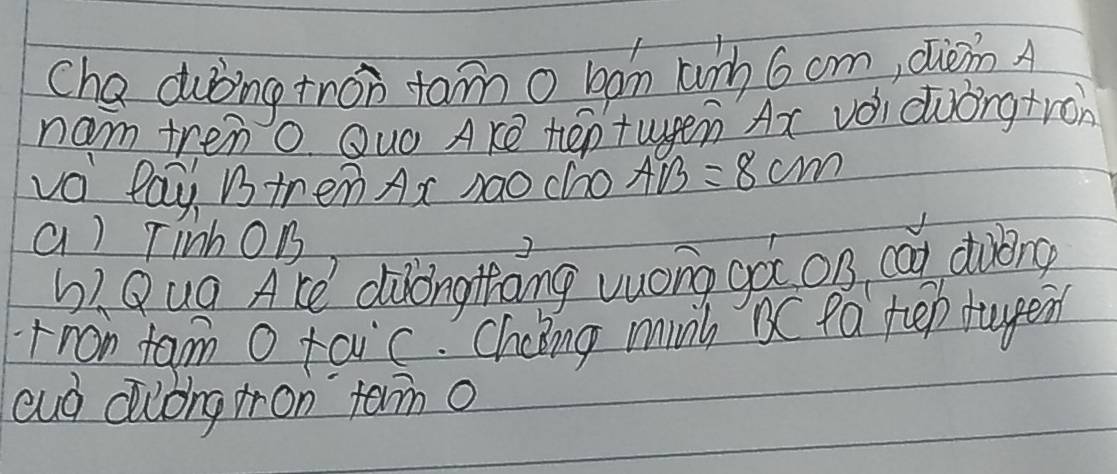 Cho đường tròn tâm O bán kính 6 cm, điểm A
nằm trên O. Qua A kẻ tiếp tuyến Ax với đường tròn
và lấy B trên Ax sao cho AB = 8 cm
a) Tính OB
b) Qua A kẻ đường thẳng vuông góc OB, cắt đường
tròn tâm O tại C. Chứng minh BC là tiếp tuyến
của đường tròn tâm O